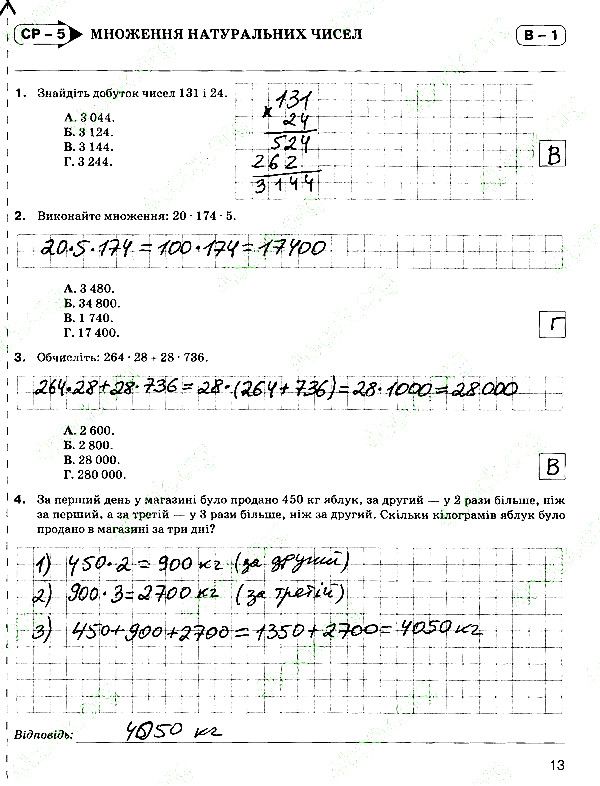 СР – 5 МНОЖЕННЯ НАТУРАЛЬНИХ ЧИСЕЛ В – 1
1. Знайдіть добуток чисел 131 і 24.
А. 3 044.
Б. 3 124.
В. 3 144.
Г. 3 244.
131
× 24
524
262
3144
В
2. Виконайте множення: 20 · 174 · 5.
20·5·174 = 100·174 = 17400
А. 3 480.
Б. 34 800.
В. 1 740.
Г. 17 400.
Г
3. Обчисліть: 264 · 28 + 28 · 736.
264·28+28·736 = 28·(264+736) = 28·1000 = 28000
А. 2 600.
Б. 2 800.
В. 28 000.
Г. 280 000.
В
4. За перший день у магазині було продано 450 кг яблук, за другий — у 2 рази більше, ніж
за перший, а за третій — у 3 рази більше, ніж за другий. Скільки кілограмів яблук було
продано в магазині за три дні?
1) 450·2 = 900 кг (за другий)
2) 900·3 = 2700 кг (за третій)
3) 450+900+2700 = 1350+2700 = 4050 кг
Відповідь: 4050 кг
13